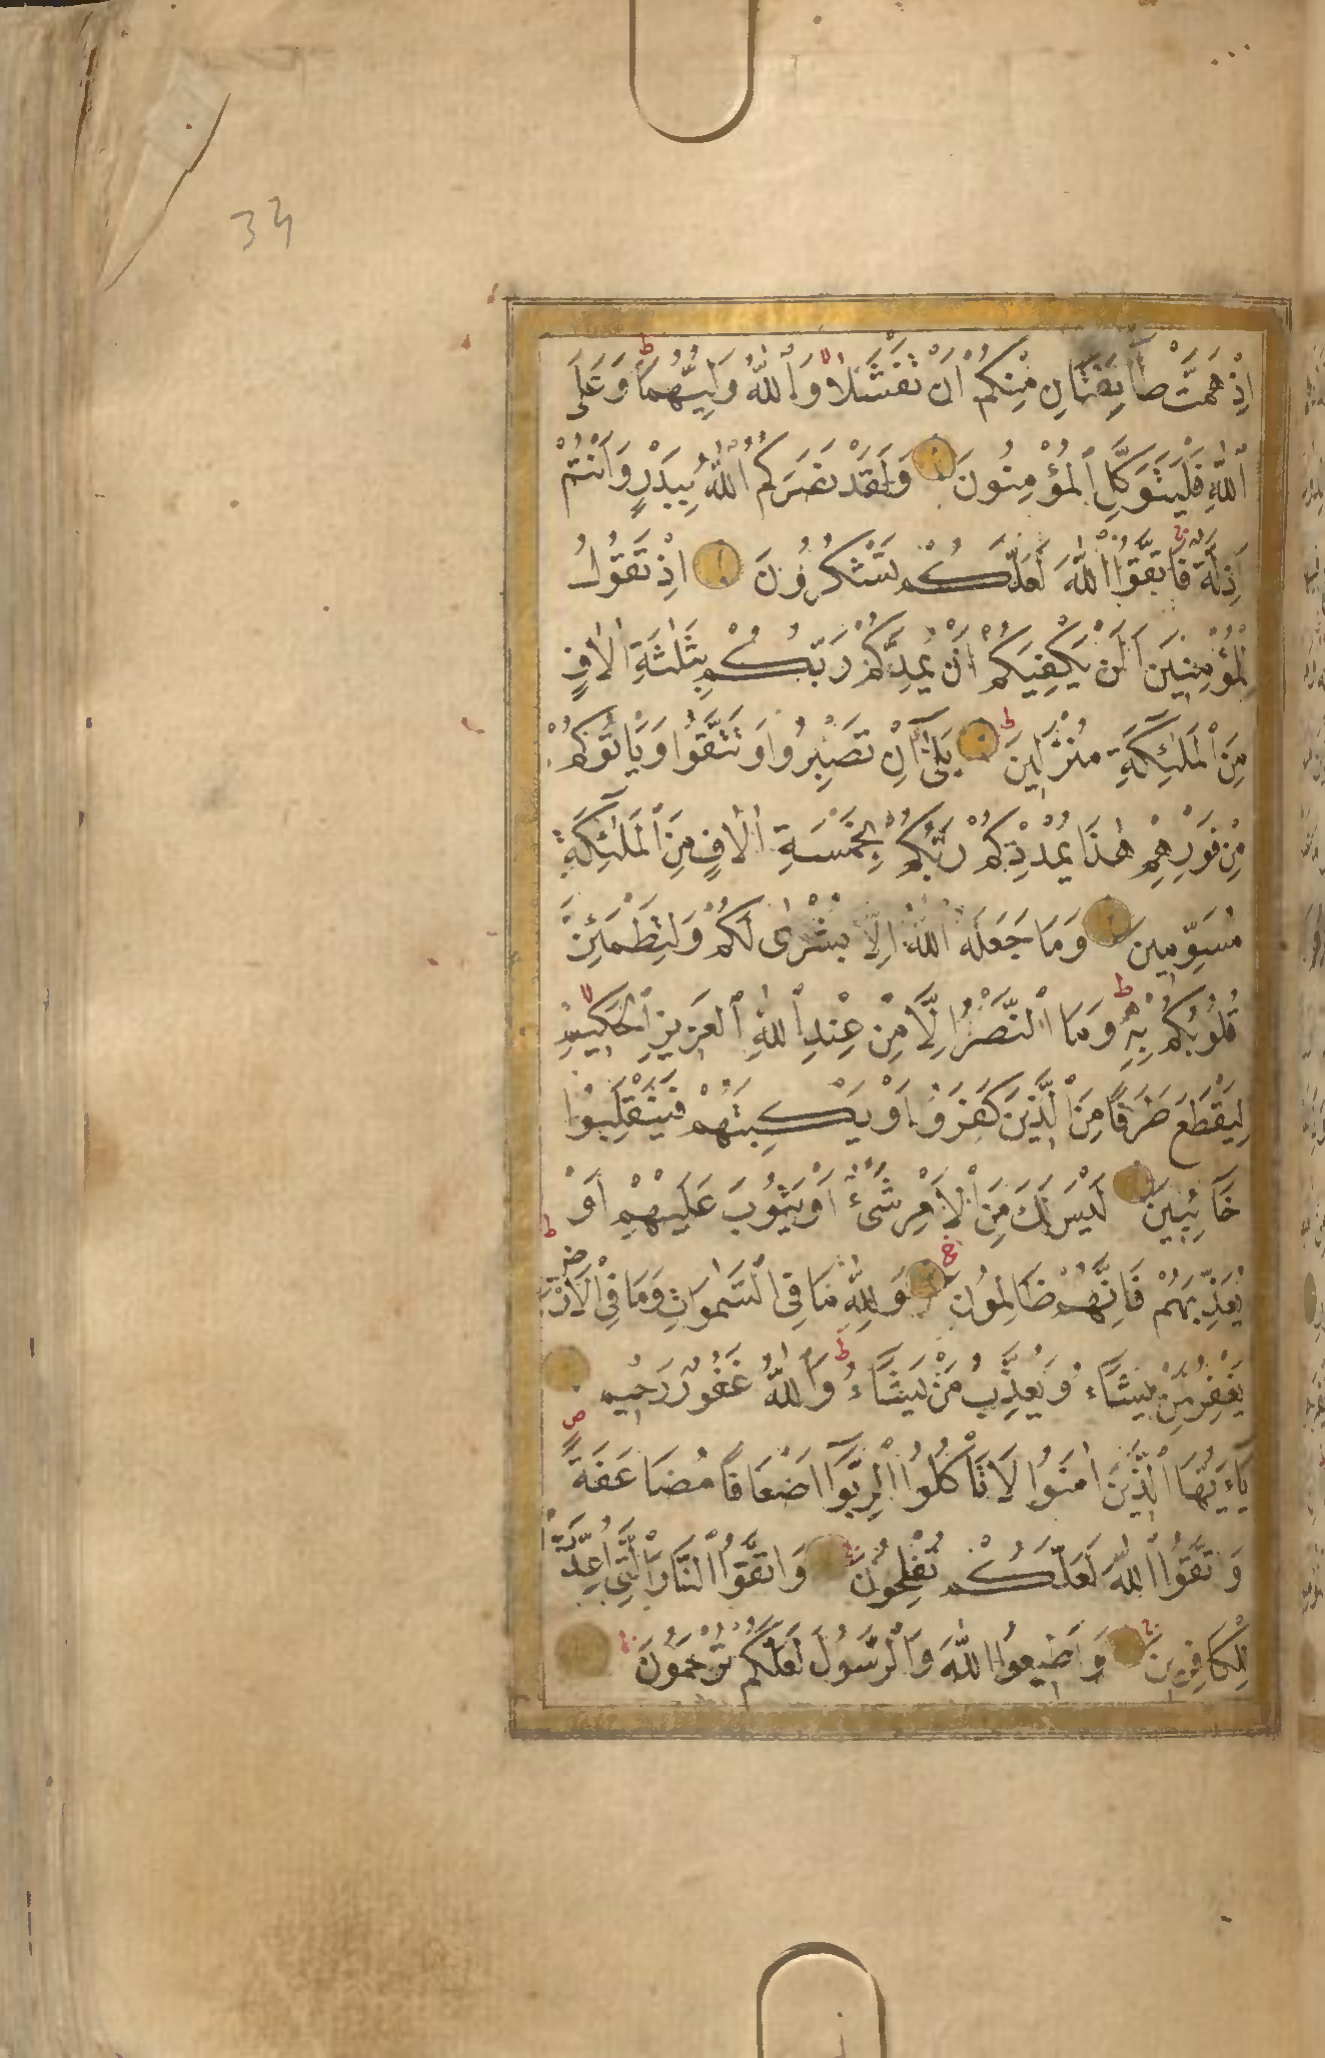 34
اِذْ هَمَّتْ طَٓائِفَتَانِ مِنْكُمْ اَنْ تَفْشَلَا وَاللّٰهُ وَلِيُّهُمَا وَعَلَى
اللّٰهِ فَلْيَتَوَكَّلِ الْمُؤْمِنُونَ وَلَقَدْ نَصَرَكُمُ اللّٰهُ بِبَدْرٍ وَاَنْتُمْ
اَذِلَّةٌ فَاتَّقُوا اللّٰهَ لَعَلَّكُمْ تَشْكُرُونَ اِذْ تَقُولُ
لِلْمُؤْمِنِينَ اَلَنْ يَكْفِيَكُمْ اَنْ يُمِدَّكُمْ رَبُّكُمْ بِثَلٰثَةِ اٰلَافٍ
مِنَ الْمَلٰٓئِكَةِ مُنْزَلِينَ بَلٰٓى اِنْ تَصْبِرُوا وَتَتَّقُوا وَيَأْتُوكُمْ
مِنْ فَوْرِهِمْ هٰذَا يُمْدِدْكُمْ رَبُّكُمْ بِخَمْسَةِ اٰلَافٍ مِنَ الْمَلٰٓئِكَةِ
مُسَوِّمِينَ وَمَا جَعَلَهُ اللّٰهُ اِلَّا بُشْرٰى لَكُمْ وَلِتَطْمَئِنَّ
قُلُوبُكُمْ بِهِ وَمَا النَّصْرُ اِلَّا مِنْ عِنْدِ اللّٰهِ الْعَزِيزِ الْحَكِيمِ
لِيَقْطَعَ طَرَفًا مِنَ الَّذِينَ كَفَرُوا اَوْ يَكْبِتَهُمْ فَيَنْقَلِبُوا
خَٓائِبِينَ لَيْسَ لَكَ مِنَ الْاَمْرِ شَىْءٌ اَوْ يَتُوبَ عَلَيْهِمْ اَوْ
يُعَذِّبَهُمْ فَاِنَّهُمْ ظَالِمُونَ وَلِلّٰهِ مَا فِى السَّمٰوَاتِ وَمَا فِى الْاَرْضِ
يَغْفِرُ لِمَنْ يَشَٓاءُ وَيُعَذِّبُ مَنْ يَشَٓاءُ وَاللّٰهُ غَفُورٌ رَحِيمٌ
يَٓاءَيُّهَا الَّذِينَ اٰمَنُوا لَا تَأْكُلُوا الرِّبٰٓوا اَضْعَافًا مُضَاعَفَةً
وَاتَّقُوا اللّٰهَ لَعَلَّكُمْ تُفْلِحُونَ وَاتَّقُوا النَّارَ الَّتِى اُعِدَّتْ
لِلْكَافِرِينَ وَاَطِيعُوا اللّٰهَ وَالرَّسُولَ لَعَلَّكُمْ تُرْحَمُونَ